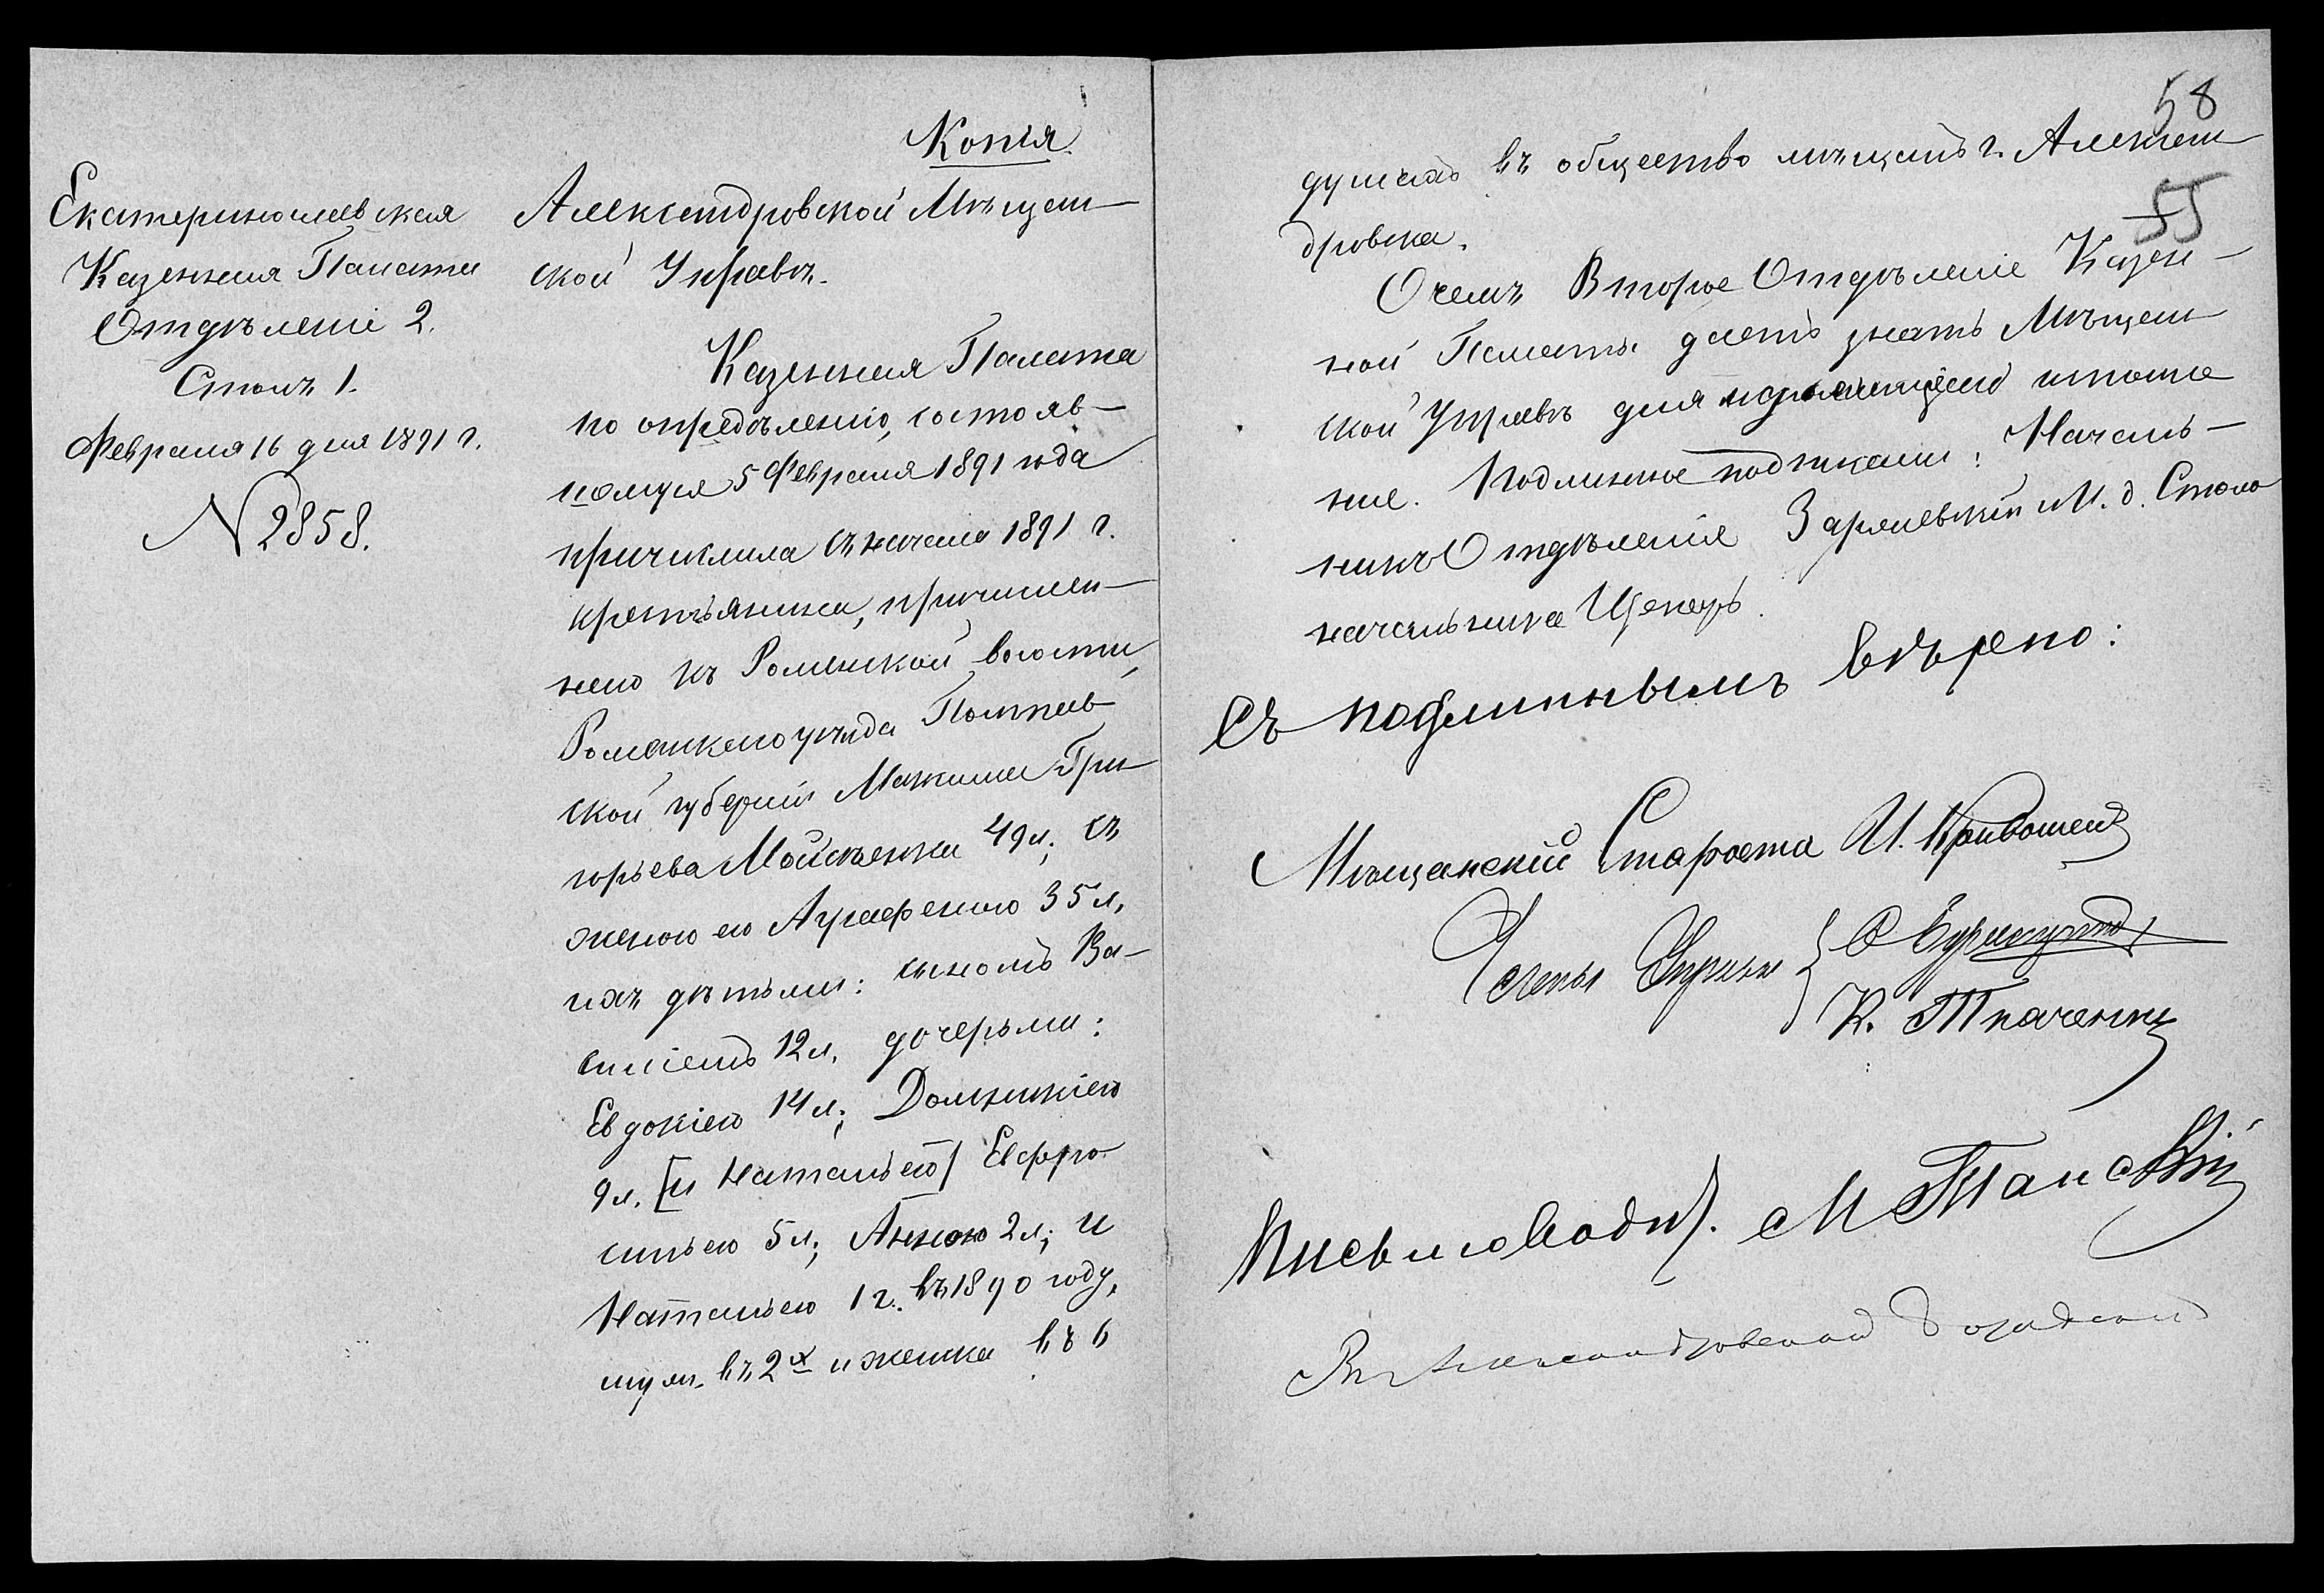 Копія.
Екатеринославская
Казенная Палата
Отдѣленіе 2.
Столъ 1.
Февраля 16 дня 1891 г.
№ 2858.
Александровской Мѣщан-
ской Управѣ.
Казенная Палата
по опредѣленію, состояв-
шемуся 5 Февраля 1891 года
причислила съ начала 1891 г.
крестьянина, причислен-
наго къ Роменской волости,
Роменскаго уѣзда Полтав-
ской губерніи Максима Гри-
горьева Мойсѣенка 49 л; съ
женою его Агрефеною 35 л,
ихъ дѣтьми: сыномъ Ва-
силіемъ 12 л, дочерьми:
Евдокіею 14 л; Домникіею
9 л. [и Натальею] Евфро-
синьею 5 л; Анною 2 л; и
Натальею 1 г. въ 1890 году,
муж. въ 2х и женска въ 6
58
душахъ въ общество мѣщанъ г. Алексан-
55
дровска.
О чемъ Второе Отдѣленіе Казен-
ной Палаты даетъ знать Мѣщан-
ской Управѣ для надлежащаго исполне
нія. Подлинное подписали: Началь-
никъ Отдѣленія И. д. Столо
начальника
Съ подлиннымъ вѣрно:
Мѣщанскій Староста И. Кривошей
Члены Управы {
К. Ткаченко
Письмоводит. М
Въ Александровской Городской